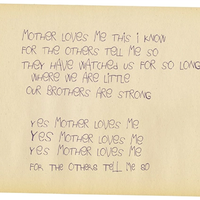 MOTHER LOVES ME THIS I KNOW
FOR THE OTHERS TELL ME SO
THEY HAVE WATCHED US FOR SO LONG
WHERE WE ARE LITTLE
OUR BROTHERS ARE STRONG
YES MOTHER LOVES ME
YES MOTHER LOVES ME
YES MOTHER LOVES ME
FOR THE OTHERS TELL ME SO